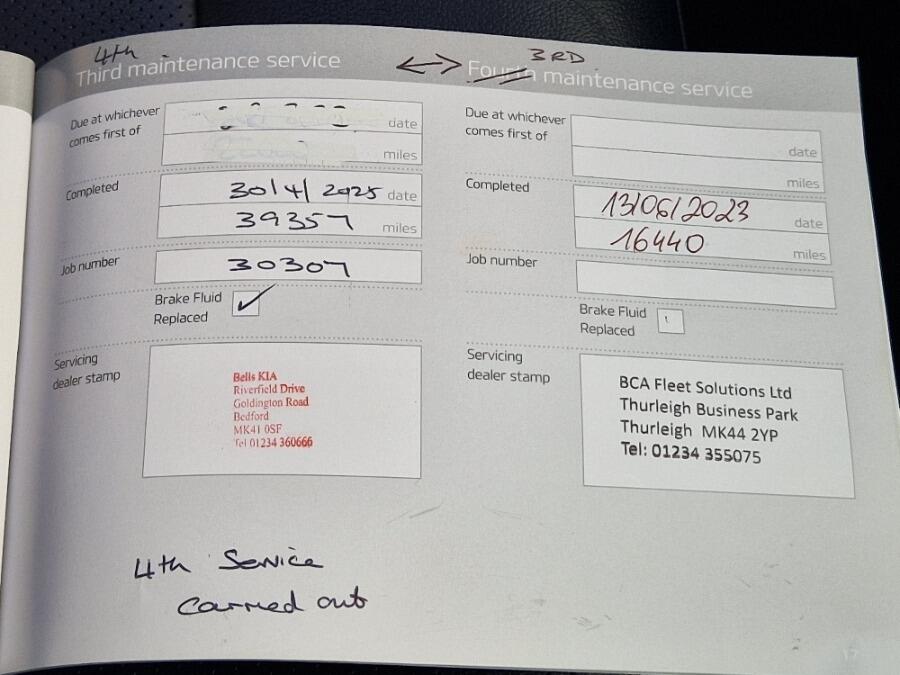 4th
Third maintenance service
Due at whichever
comes first of
date
miles
Completed
30/4/2025 date
39357 miles
Job number
30307
Brake Fluid
Replaced
Servicing
dealer stamp
Bells KIA
Riverfield Drive
Goldington Road
Bedford
MK41 0SF
Tel 01234 360666
4th Service
Carried out
3RD
Fourth maintenance service
Due at whichever
comes first of
date
miles
Completed
13/06/2023 date
16440 miles
Job number
Brake Fluid
Replaced
Servicing
dealer stamp
BCA Fleet Solutions Ltd
Thurleigh Business Park
Thurleigh MK44 2YP
Tel: 01234 355075